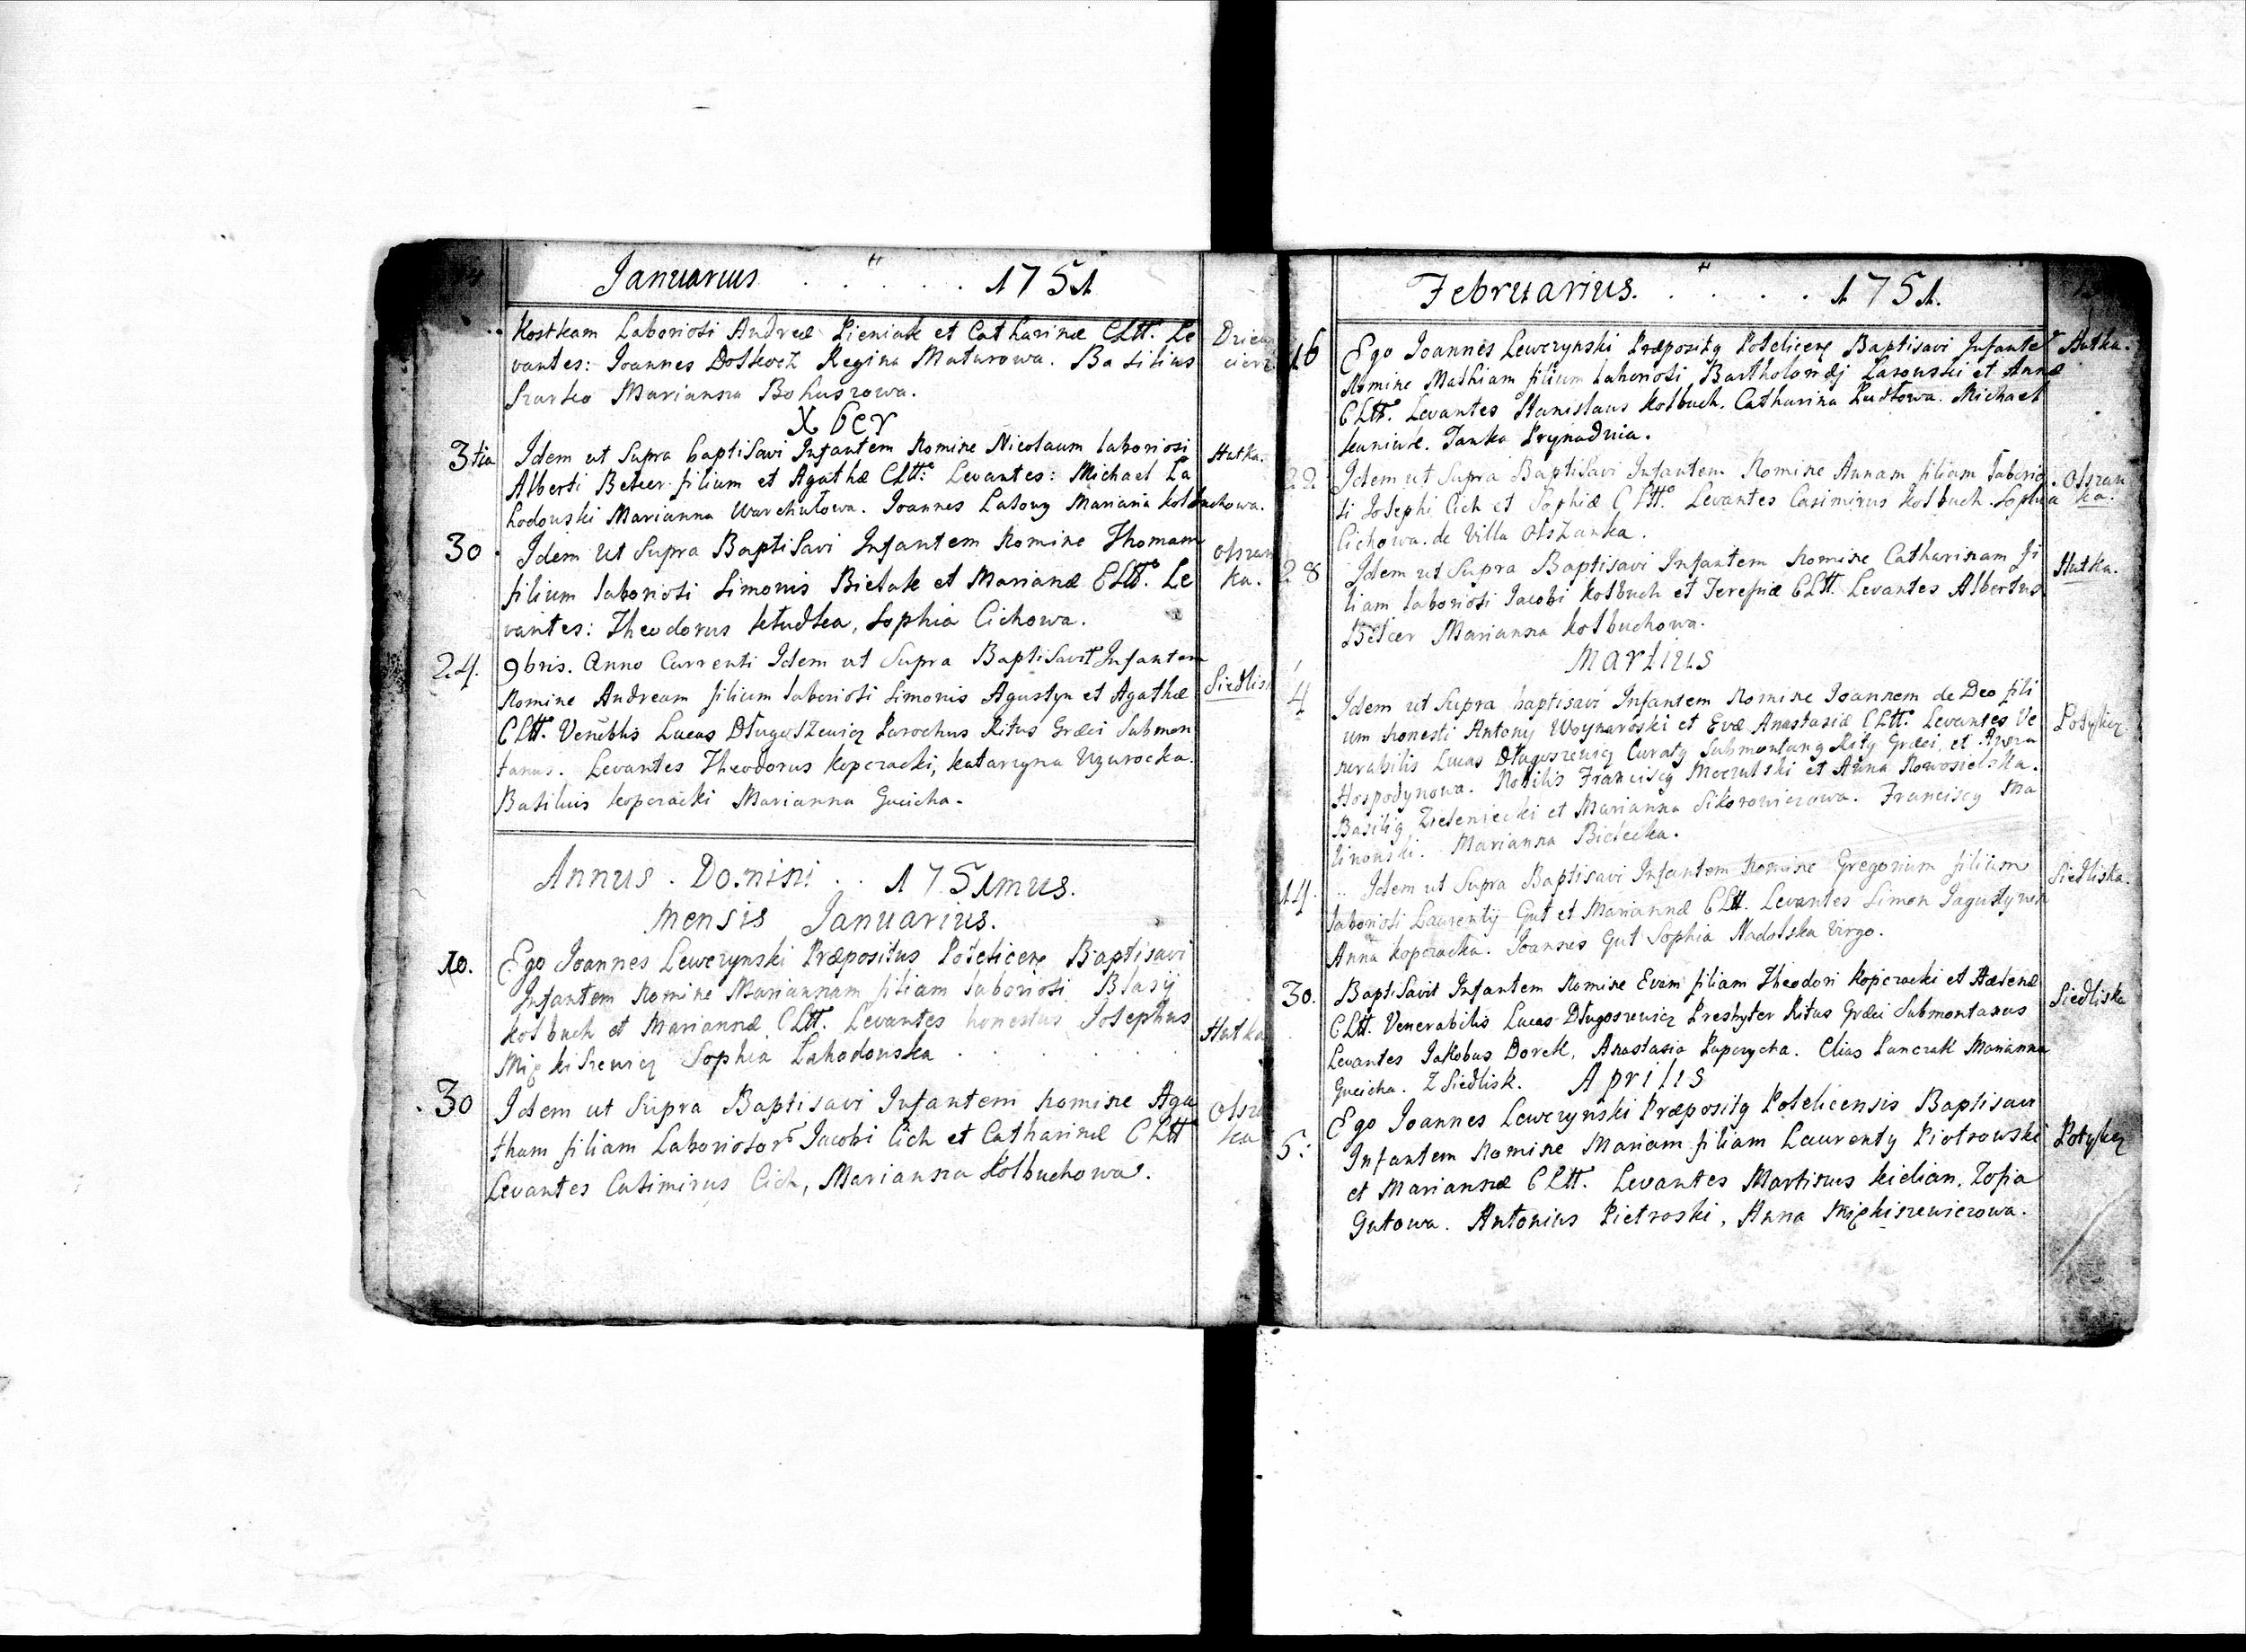 Januarius . . . . . 1751
Kostkam Laboriosi Andreæ Pieniak et Catharinæ CLtt. Le
vantes: Joannes Doskocz Regina Maturowa. Basilius
Szarko Marianna Bohuszowa.
Xber
3tia Idem ut Supra baptisavi Infantem Nomine Nicolaum laboriosi Hutka.
Alberti Betcer filium et Agathæ CLtt. Levantes: Michael La
hodouski Marianna Warchułowa. Joannes Lasowy Mariana kolbuchowa.
30 Idem ut Supra Baptisavi Infantem Nomine Thomam Olszan
filium laboriosi Simonis Bielak et Marianæ CLtt. Le ka.
vantes: Theodorus Sophia Cichowa.
24. 9bris. Anno Currenti Idem ut Supra Baptisavit Infantem
Nomine Andream filium laboriosi Simonis Agustyn et Agathæ Siedlis
CLtt. Venēblis Lucas DługoSzewicz Parochus Ritus Græci Submon
tanus. Levantes Theodorus kopczacki, katarzyna Uzarocka.
Basilius kopczacki Marianna Guicha.
Annus . Domini . . 1751mus.
Mensis Januarius.
10. Ego Joannes Lewczynski Præpositus Potelicen Baptisavi
Infantem Nomine Mariannam filiam laboriosi Blasij
kolbuch et Mariannæ CLtt. Levantes honestus Josephus Hutka
Miękiszewicz Sophia Lahodouska . . . . .
30 Idem ut Supra Baptisavi Infantem Nomine Aga Olsza
tham filiam Laboriosor Jacobi Cich et Catharinæ CLtt ka
Levantes Casimirus Cich, Marianna Kolbuchowa.
Februarius. . . . . 1751.
16 Ego Joannes Lewczynski Præpositq Potelicen Baptisavi Infante Hutka.
Nomine Mathiam filium laboriosi Bartholomæj Lasouski et Annæ
CLtt. Levantes Stanislaus Kolbuch. Catharina Pudłowa. Michael
kuniuk. Tanka Prynadnia.
22 Idem ut Supra Baptisavi Infantem Nomine Annam filiam laborio Olszan
si Josephi Cich et Sophiæ CLtt. Levantes Casimirus Kolbuch. Sophia ka.
Cichowa. de Villa Olszanka.
28 Idem ut Supra Baptisavi Infantem Nomine Catharinam fi Hutka.
liam laboriosi Jacobi Kolbuch et Teresiæ CLtt. Levantes Albertus
Betcer Marianna Kolbuchowa.
Martius
4 Idem ut Supra baptisavi Infantem Nomine Joannem de Deo fili
um honesti Antony Woynaroski et Evæ Anastasiæ CLtt. Levantes Ve Potylicz
nerabilis Lucas Długoszewicz Curatq Submontanq Ritq Græci, et
Hospodynowa. Nobilis Franciscq Moczulski et Anna Nowosielska.
Basiliq Zieleniecki et Marianna Sikorowiczowa. Franciscq Ma
linouski. Marianna Bielecka.
14. Idem ut Supra Baptisavi Infantem Nomine Gregorium filium Siedliska.
laboriosi Laurentij Gut et Mariannæ CLtt. Levantes Simon Jagustynin
Anna kopczacka. Joannes Gut Sophia Nadolska Virgo.
30. Baptisavit Infantem Nomine Evam filiam Theodori kopczacki et Hælenæ Siedliska
CLtt. Venerabilis Lucas Długoszewicz Presbyter Ritus Græci Submontanus
Levantes Jakobus Dorek, Anastasia Paperycha. Elias Panczak Marianna
Gucicha. Z Siedlisk. Aprilis
Ego Joannes Lewczynski Præpositq Potelicensis Baptisavi
5: Infantem Nomine Mariam filiam Laurenty Piotrowski Potylicz
et Mariannæ CLtt. Levantes Martinus kielian, Zofia
Gutowa. Antonius Pietroski, Anna Miękiszewiczowa.